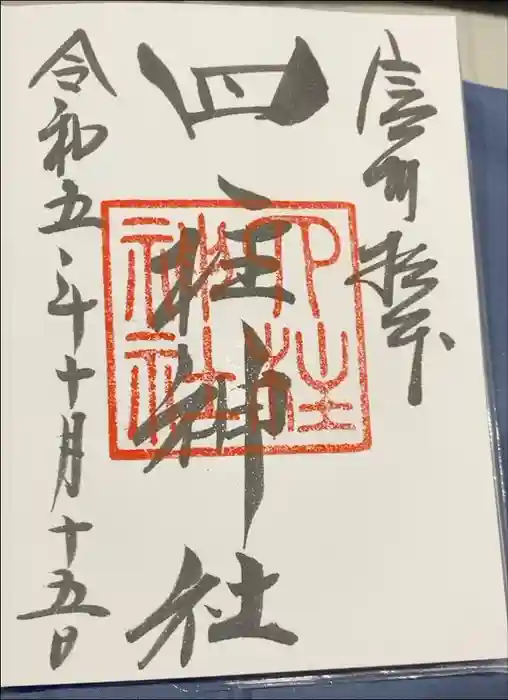 信州松本
四柱神社
四柱
神社
令和五年十月十五日